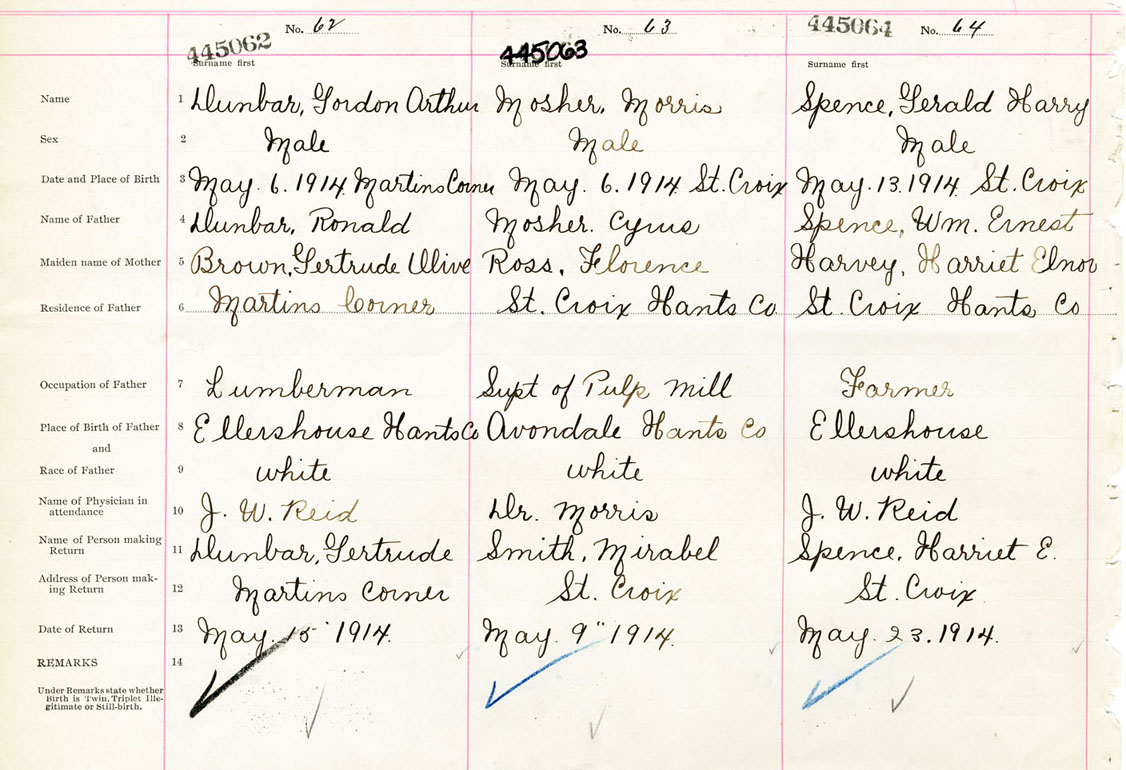 No. 62 No. 63 No. 64
445062 445063 445064
Surname first Surname first Surname first
Name 1 Dunbar, Gordon Arthur Mosher, Morris Spence, Gerald Harry
Sex 2 Male Male Male
Date and Place of Birth 3 May. 6. 1914 Martins Corner May. 6. 1914 St. Croix May. 13. 1914 St. Croix
Name of Father 4 Dunbar, Ronald Mosher. Cyrus Spence, Wm. Ernest
Maiden name of Mother 5 Brown, Gertrude Olive Ross, Florence Harvey, Harriet Elnor
Residence of Father 6 Martins Corner St. Croix Hants Co St. Croix Hants Co
Occupation of Father 7 Lumberman Supt of Pulp Mill Farmer
Place of Birth of Father 8 Ellershouse Hants Co Avondale Hants Co Ellershouse
and
Race of Father 9 white white white
Name of Physician in
attendance 10 J. W. Reid Dr. Morris J. W. Reid
Name of Person making
Return 11 Dunbar, Gertrude Smith, Mirabel Spence, Harriet E.
Address of Person mak-
ing Return 12 Martins Corner St. Croix St. Croix
Date of Return 13 May. 15" 1914. May. 9" 1914. May. 23. 1914.
REMARKS 14
Under Remarks state whether
Birth is Twin, Triplet Ille-
gitimate or Still-birth.